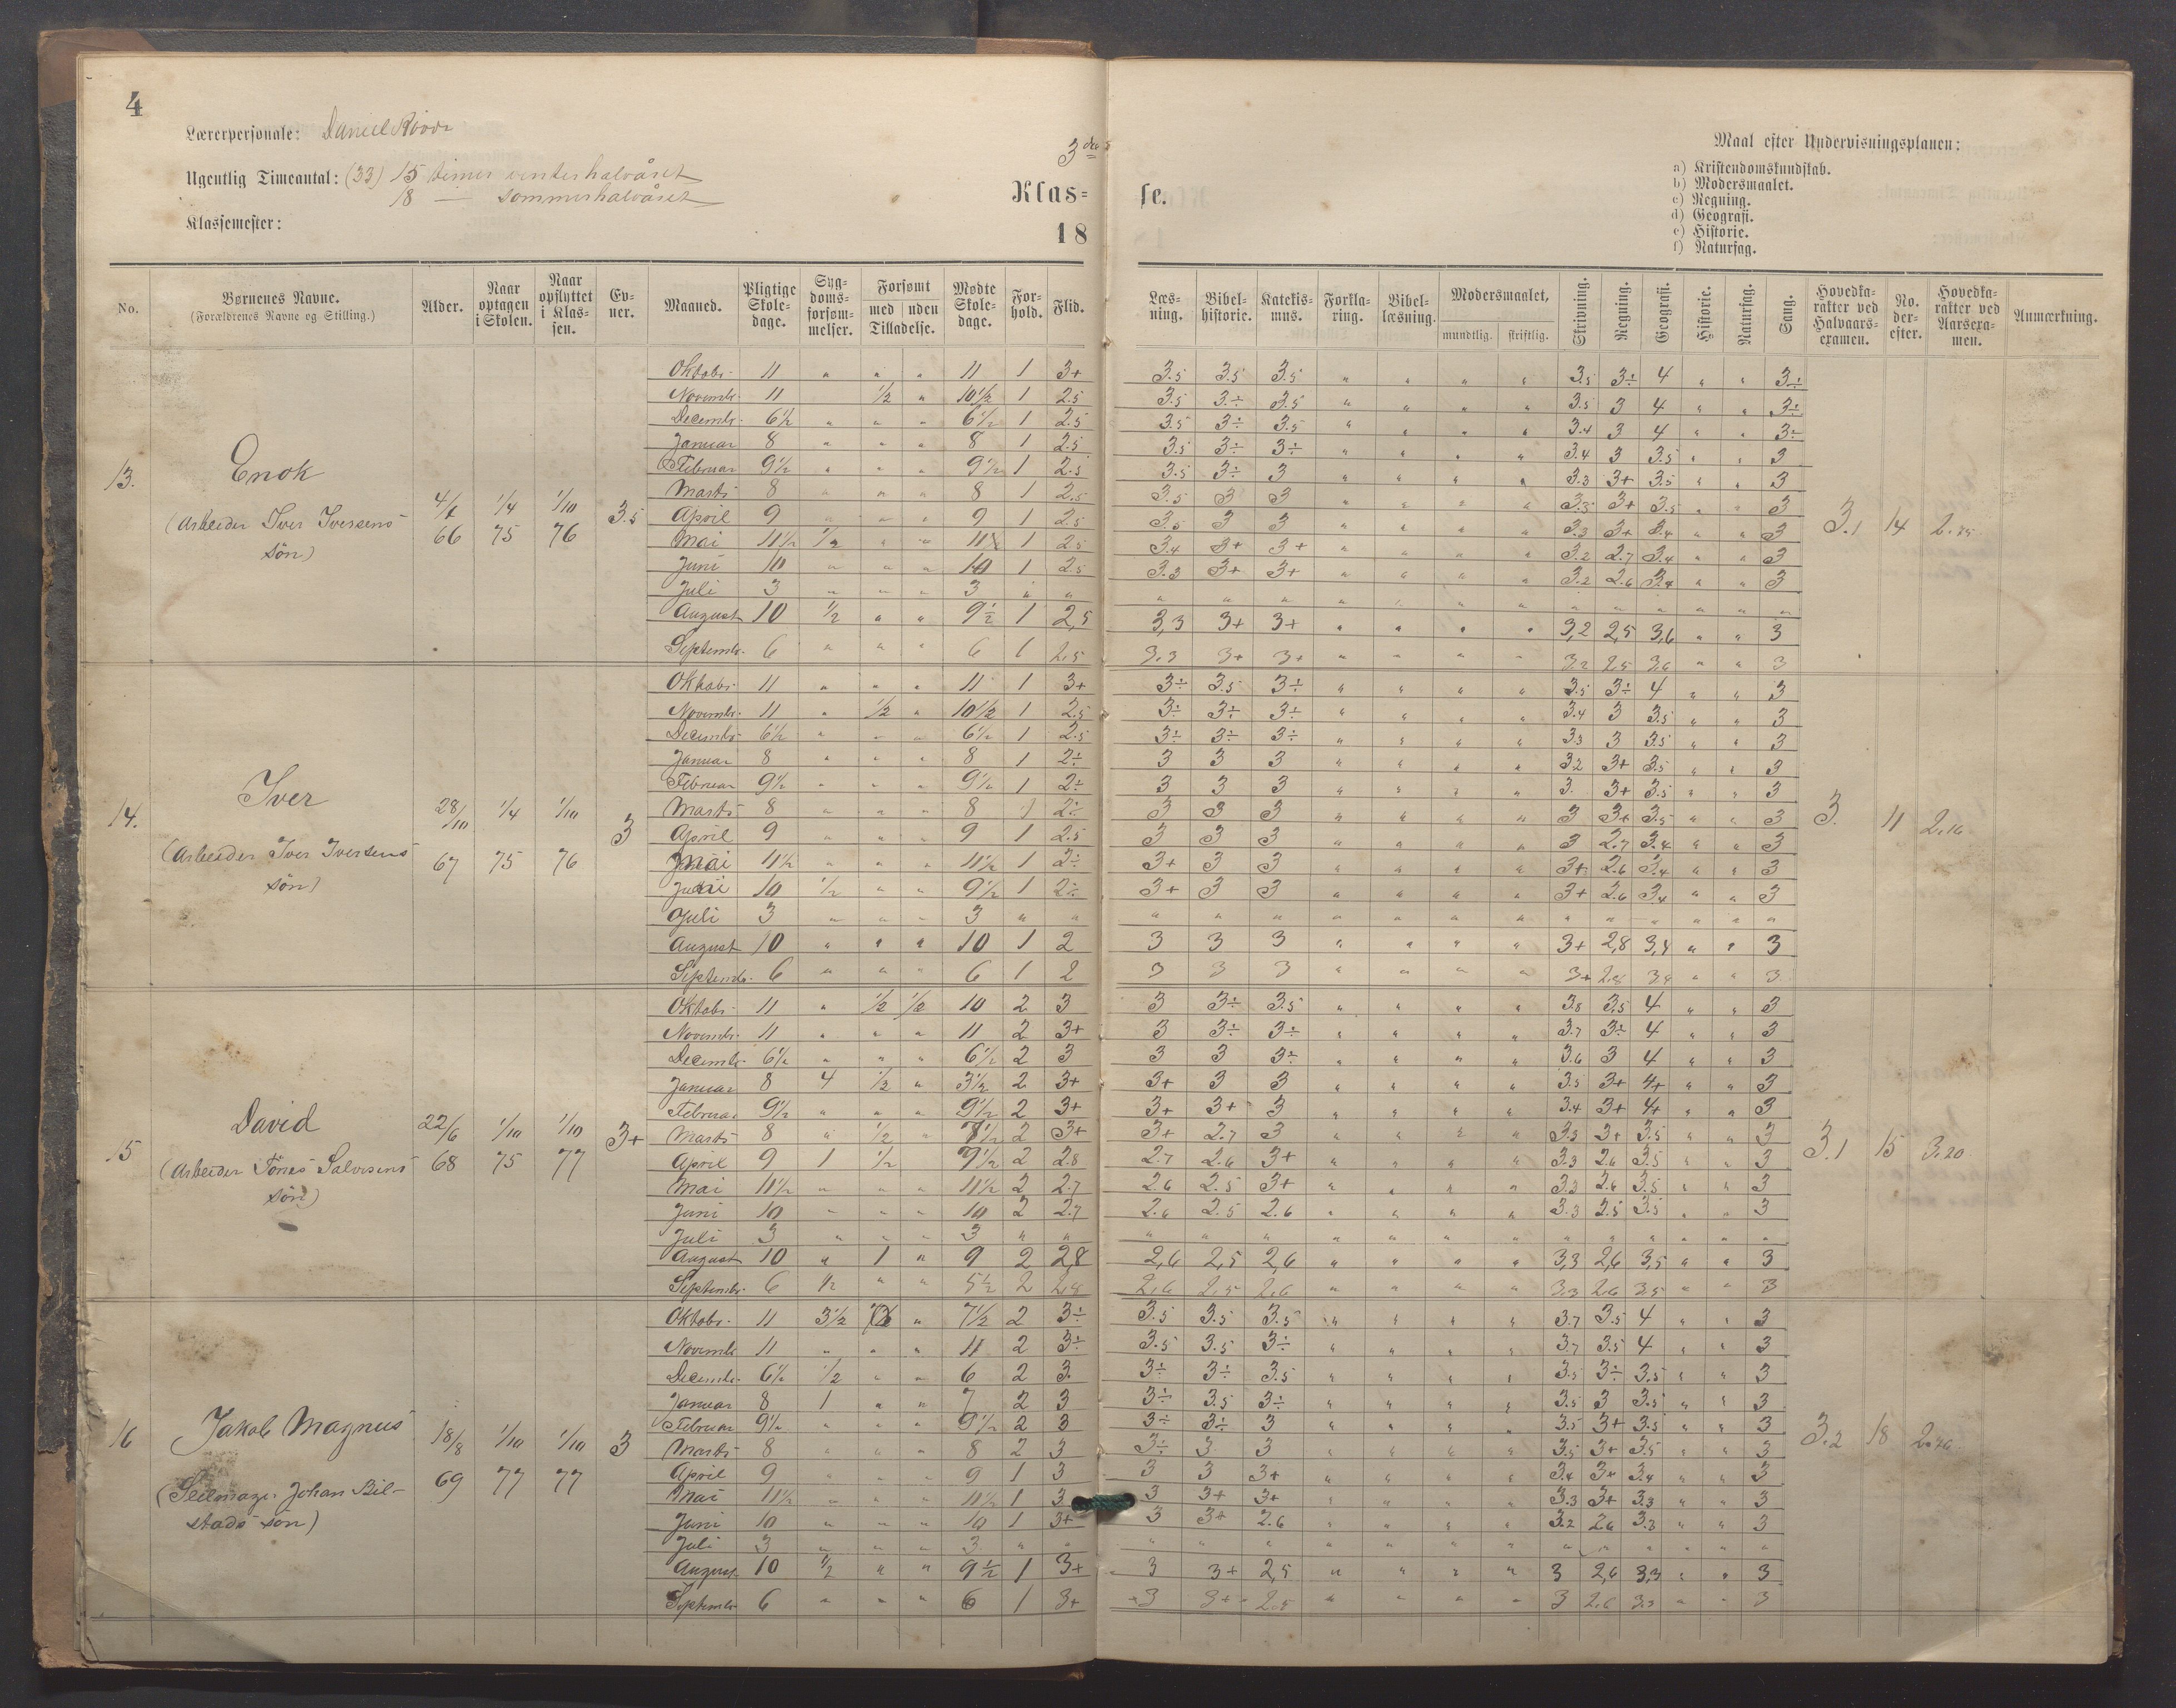 4
Lærerpersonale: Daniel
Ugentlig Timeantal: (33) 15 timer vinterhalvåret
18 — sommerhalvåret
Klassemester:
3die
Klas=
se.
18
Maal efter Undervisningsplanen:
a) Kristendomskundskab.
b) Modersmaalet.
c) Regning.
d) Geografi.
e) Historie.
f) Naturfag.
No. Børnenes Navne. (Forældrenes Navne og Stilling.) Alder. Naar optagen i Skolen. Naar opflyttet i Klassen. Evner. Maaned. Pligtige Skoledage. Sygdomsforsømmelser. Forsømt med uden Tilladelse. Mødte Skoledage. Forhold. Flid. Læsning. Bibelhistorie. Katekismus. Forklaring. Bibellæsning. Modersmaalet, mundtlig. skriftlig. Skrivning. Regning. Geografi. Historie. Naturfag. Sang. Hovedkarakter ved Halvaarsexamen. No. derefter. Hovedkarakter ved Aarsexamen. Anmærkning.
13. Enok
(Arbeider Iver Iversens søn)
66 1/4 75 1/10 76 3.5
3.1 14
Oktobr. 11 " " " 11 1 3+ 3.5 3.5 3.5 " " " " 3.5 3÷ 4 " " 3÷
Novembr. 11 1/2 " 10 1/2 1 2.5 3.5 3÷ 3.5 " " " " 3.5 3 4 " " 3÷
Decembr. 6 1/2 " " " 6 1/2 1 2.5 3.5 3÷ 3.5 " " " " 3.4 3 4 " " 3÷
Januar 8 " " " 8 1 2.5 3.5 3÷ 3÷ " " " " 3.4 3 3.5 " " 3
Februar 9 1/2 " " " 9 1/2 1 2.5 3.5 3÷ 3 " " " " 3.3 3+ 3.5 " " 3
Marts 8 " " " 8 1 2.5 3.5 3 3 " " " " 3.3 3+ 3.5 " " 3
April 9 " " " 9 1 2.5 3.5 3 3 " " " " 3.3 3+ 3.4 " " 3
Mai 11 1/2 1/2 " " 11 1 2.5 3.4 3+ 3+ " " " " 3.2 2.7 3.4 " " 3
Juni 10 " " " 10 1 2.5 3.3 3+ 3+ " " " " 3.2 2.6 3.4 " " 3
Juli 3 " " " 3 " " " " " " " " " " " " " " "
August 10 1/2 " " 9 1/2 1 2,5 3,3 3+ 3+ " " " " 3,2 2,5 3,6 " " 3
Septembr. 6 " " " 6 1 2.5 3.3 3+ 3+ " " " " 3.2 2.5 3.6 " " 3
14. Iver
(Arbeider Iver Iversens søn)
28/10 67 1/4 75 1/10 76 3
3. 11 2.16
Oktobr. 11 " " " 11 1 3+ 3÷ 3.5 3÷ " " " " 3.5 3÷ 4 " " 3
Novembr. 11 " 1/2 " 10 1/2 1 2.5 3÷ 3÷ 3÷ " " " " 3.4 3 3.5 " " 3
Decembr. 6 1/2 " " " 6 1/2 1 2.5 3÷ 3÷ 3÷ " " " " 3.3 3 3.5 " " 3
Januar 8 " " " 8 1 2÷ 3 3 3 " " " " 3.2 3+ 3.5 " " 3
Februar 9 1/2 " " " 9 1/2 1 2÷ 3 3 3 " " " " 3. 3+ 3.5 " " 3
Marts 8 " " " 8 1 2÷ 3 3 3 " " " " 3 3+ 3.5 " " 3
April 9 " " " 9 1 2.5 3 3 3 " " " " 3 2.7 3.4 " " 3
Mai 11 1/2 " " " 11 1/2 1 2÷ 3+ 3 3 " " " " 3+ 2.6 3.4 " " 3
Juni 10 1/2 " " 9 1/2 1 2÷ 3+ 3 3 " " " " 3+ 2.6 3.4 " " 3
Juli 3 " " " 3 " " " " " " " " " " " " " " "
August 10 " " " 10 1 2 3 3 3 " " " " 3+ 2,8 3,4 " " 3
Septembr. 6 " " " 6 1 2 3 3 3 " " " " 3+ 2.8 3.4 " " 3
15 David
(Arbeider Tønes Salvesens søn)
22/6 68 1/10 75 1/10 77 3+
3.1 15 3.20
Oktobr. 11 " 1/2 1/2 10 2 3 3 3÷ 3.5 " " " " 3.8 3.5 4 " " 3
Novembr. 11 " " " 11 2 3+ 3 3÷ 3÷ " " " " 3.7 3÷ 4 " " 3
Decembr. 6 1/2 " " " 6 1/2 2 3 3 3 3÷ " " " " 3.6 3 4 " " 3
Januar 8 4 1/2 " 3 1/2 2 3+ 3+ 3 3 " " " " 3.5 3+ 4+ " " 3
Februar 9 1/2 " " " 9 1/2 2 3+ 3+ 3+ 3 " " " " 3.4 3+ 4+ " " 3
Marts 8 " 1/2 " 7 1/2 2 3+ 3+ 2.7 3 " " " " 3.3 3+ 3.5 " " 3
April 9 1 1/2 " 7 1/2 2 2.8 2.7 2.6 3+ " " " " 3.3 2.6 3.5 " " 3
Mai 11 1/2 " " " 11 1/2 2 2.7 2.6 2.5 3+ " " " " 3.3 2.6 3.5 " " 3
Juni 10 " " " 10 2 2.7 2.6 2.5 2.6 " " " " 3.3 2.5 3.5 " " 3
Juli 3 " " " 3 " " " " " " " " " " " " " " "
August 10 " 1 " 9 2 2,8 2,6 2,5 2,6 " " " " 3,3 2,6 3,5 " " 3
Septembr. 6 1/2 " " 5 1/2 2 2.8 2.6 2.5 2.6 " " " " 3.3 2.6 3.5 " " 3
16 Jakob Magnus
(Seilmager Johan Bilstads søn)
18/8 69 1/10 77 1/10 77 3
3.2 18
Oktobr. 11 3 1/2 " 7 1/2 2 3÷ 3.5 3.5 3.5 " " " " 3.7 3.5 4 " " 3
Novembr 11 " " " 11 2 3÷ 3.5 3.5 3÷ " " " " 3.7 3.5 4 " " 3
Decembr. 6 1/2 1/2 " " 6 2 3. 3÷ 3÷ 3.5 " " " " 3.5 3÷ 3.5 " " 3
Januar 8 1 " " 7 2 3 3÷ 3.5 3÷ " " " " 3.5 3 3.5 " " 3
Februar 9 1/2 " " " 9 1/2 2 3 3÷ 3÷ 3 " " " " 3.5 3+ 3.5 " " 3
Marts 8 " " " 8 2 3 3÷ 3 3 " " " " 3.5 3+ 3.5 " " 3
April 9 " " " 9 1 3 3 3 3+ " " " " 3.4 3+ 3.4 " " 3
Mai 11 1/2 " " " 11 1/2 1 3 3 3+ 3+ " " " " 3.3 3+ 3.3 " " 3
Juni 10 " " " 10 1 3+ 3 3+ 2.6 " " " " 3.2 2.6 3.3 " " 3
Juli 3 " " " 3 " " " " " " " " " " " " " " "
August 10 1/2 " " 9 1/2 1 3+ 3 3+ 2,5 " " " " 3 2,6 3,3 " " 3
Septembr 6 " " " 6 1 3+ 3 3+ 2.5 " " " " 3 2.6 3.3 " " 3